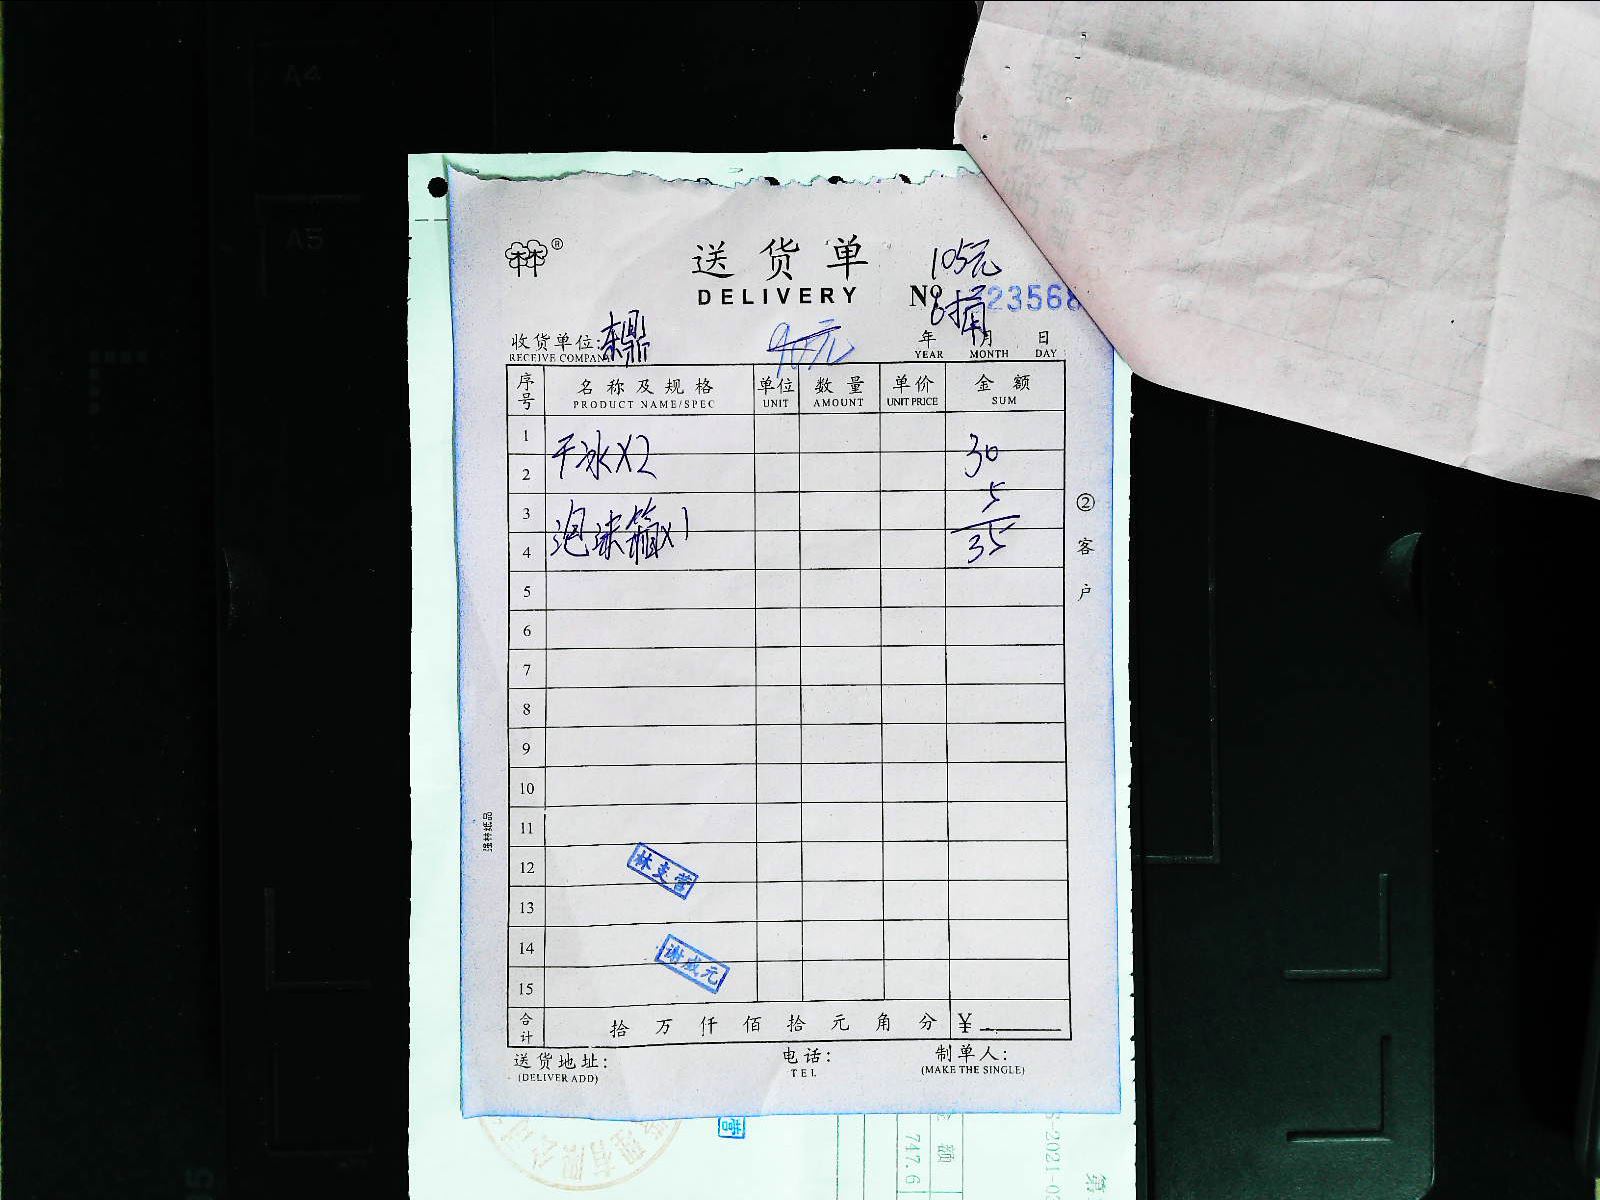 A4
A5
®
送货单
105元
DELIVERY
No 23568
6捅
收货单位:
RECEIVE COMPANY
90元
年 月 日
YEAR MONTH DAY
序号 名称及规格 单位 数量 单价 金额
PRODUCT NAME/SPEC UNIT AMOUNT UNIT PRICE SUM
1
干冰X2 30
2
3 5
泡沫箱x1
4 35
5
6
7
8
9
10
11
12 林支营
13
14 谢成元
15
合计 拾 万 仟 佰 拾 元 角 分 ¥
② 客户
强林纸品
送货地址: 电话: 制单人:
(DELIVER ADD) TEL (MAKE THE SINGLE)
营
额
747.6
-2021-0
第